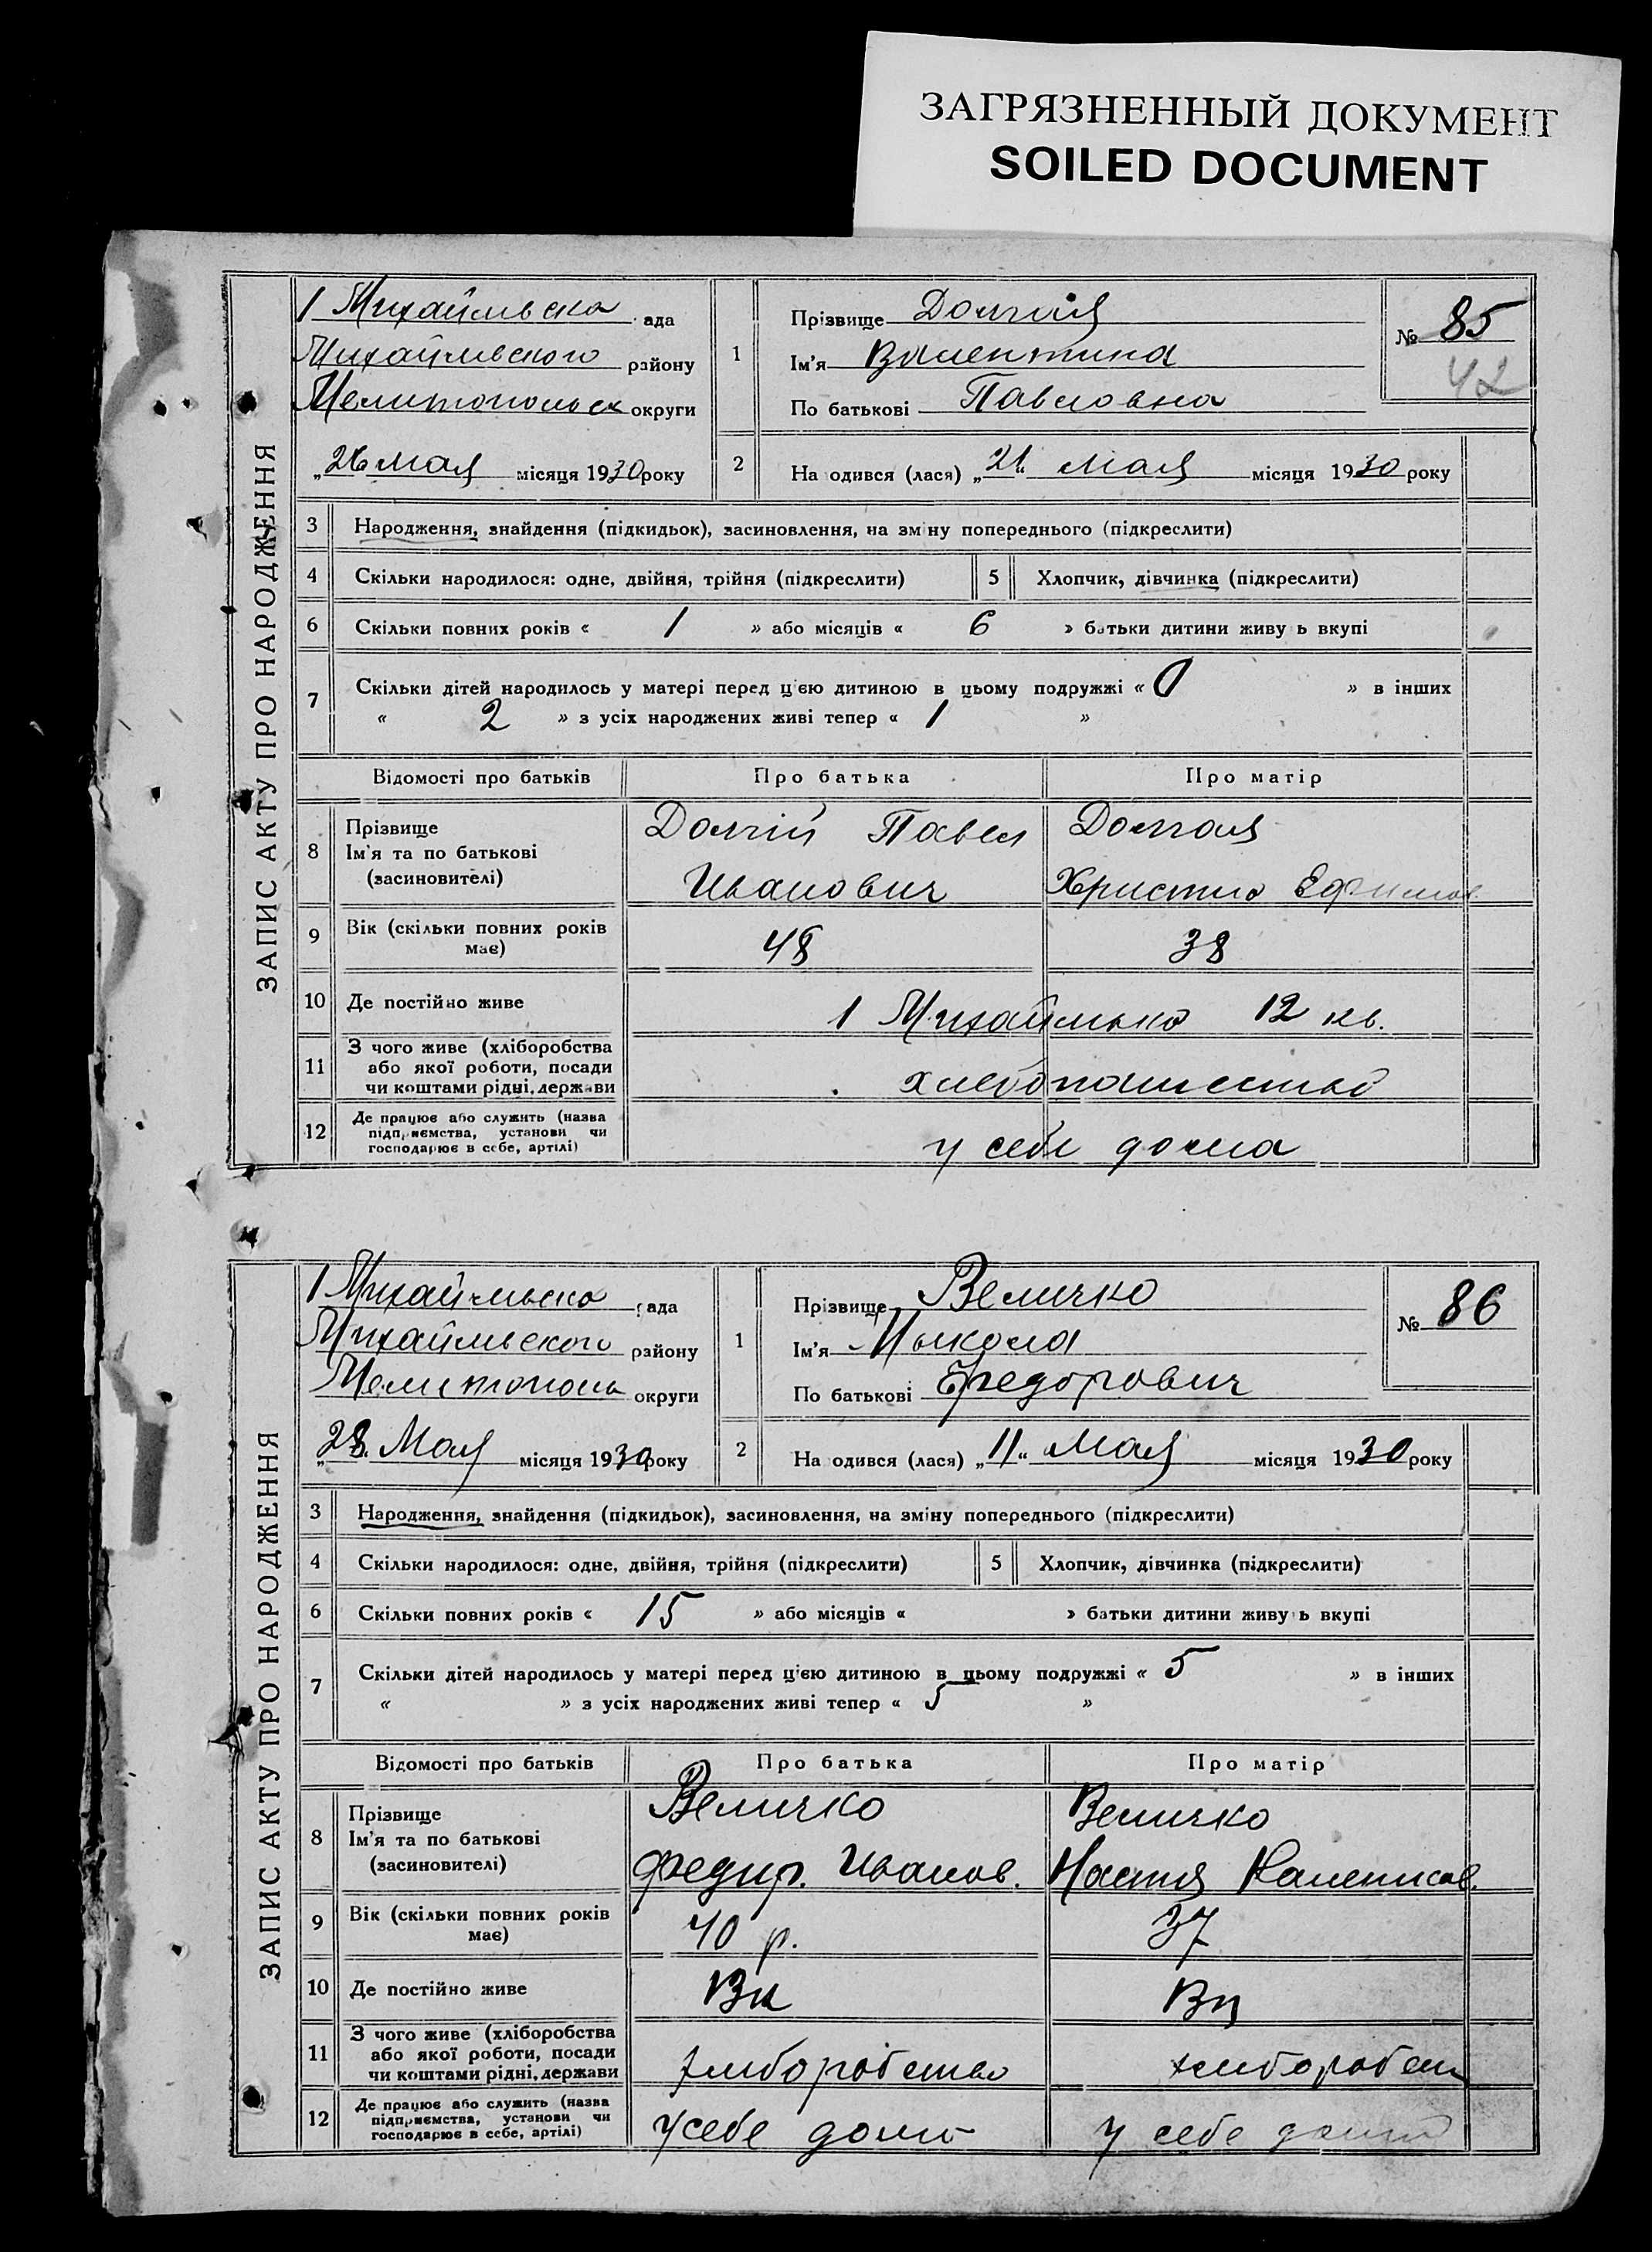 ЗАГРЯЗНЕННЫЙ ДОКУМЕНТ
SOILED DOCUMENT
ЗАПИС АКТУ ПРО НАРОДЖЕННЯ
1 Михайльська ада
Михайлівского району
Мелитопольск округи
„26 мая місяця 1930 року
1
Прізвище Долгая
Ім'я Валентина
По батькові Павловна
№ 85
42
2 На одився (лася) „21" мая місяця 1930 року
3 Народження, знайдення (підкидьок), засиновлення, на зміну попереднього (підкреслити)
4 Скільки народилося: одне, двійня, трійня (підкреслити) 5 Хлопчик, дівчинка (підкреслити)
6 Скільки повних років « 1 » або місяців « 6 » батьки дитини живу ь вкупі
7 Скільки дітей народилось у матері перед цією дитиною в цьому подружжі « 0 » в інших
« 2 » з усіх народжених живі тепер « 1 »
Відомості про батьків Про батька Про матір
8 Прізвище
Ім'я та по батькові
(засиновителі)
Долгій Павел
Иванович
Долгая
Христия Ефимов.
9 Вік (скільки повних років
має)
48 38
10 Де постійно живе 1 Михайлька 12 кв.
11 З чого живе (хліборобства
або якої роботи, посади
чи коштами рідні, держави
хлебопашество
12 Де працює або служить (назва
підприємства, установи чи
господарює в себе, артілі)
у себе дома
ЗАПИС АКТУ ПРО НАРОДЖЕННЯ
1 Михайльська ада
Михайлівского району
Мелитополь округи
„28. Мая місяця 1930 року
1
Прізвище Величко
Ім'я Микола
По батькові Федорович
№ 86
2 На одився (лася) „11" Мая місяця 1930 року
3 Народження, знайдення (підкидьок), засиновлення, на зміну попереднього (підкреслити)
4 Скільки народилося: одне, двійня, трійня (підкреслити) 5 Хлопчик, дівчинка (підкреслити)
6 Скільки повних років « 15 » або місяців « » батьки дитини живу ь вкупі
7 Скільки дітей народилось у матері перед цією дитиною в цьому подружжі « 5 » в інших
« » з усіх народжених живі тепер « 5 »
Відомості про батьків Про батька Про матір
8 Прізвище
Ім'я та по батькові
(засиновителі)
Величко
Федир. Иванов.
Величко
Настя Калеников.
9 Вік (скільки повних років
має)
40 р. 37
10 Де постійно живе
11 З чого живе (хліборобства
або якої роботи, посади
чи коштами рідні, держави
хліборобство хліборобств
12 Де працює або служить (назва
підприємства, установи чи
господарює в себе, артілі)
у себе дома у себе дома